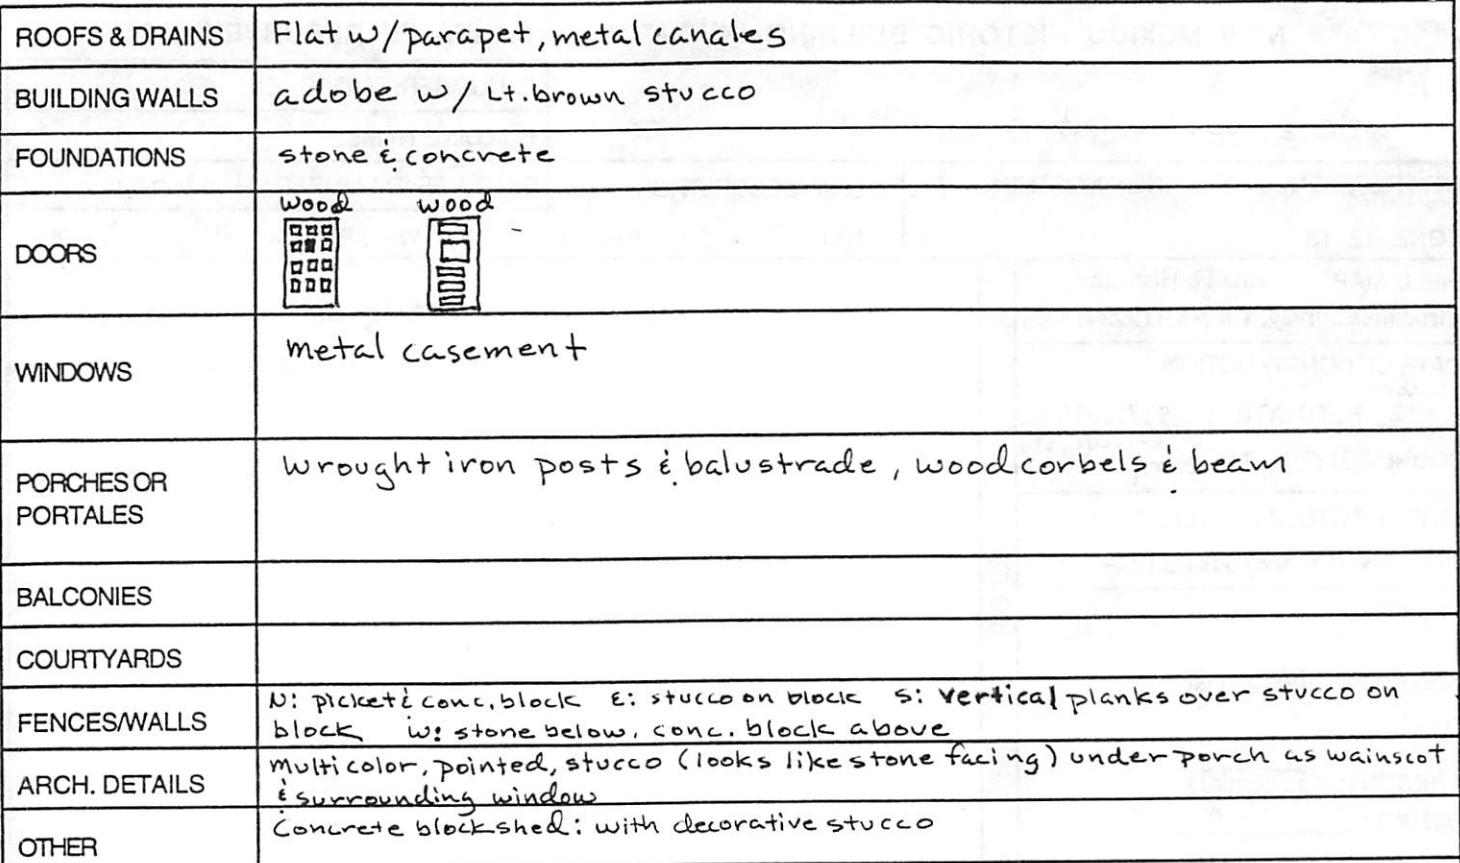 ROOFS & DRAINS Flat w/parapet, metal canales
BUILDING WALLS adobe w/ Lt. brown stucco
FOUNDATIONS stone & concrete
wood wood
DOORS
WINDOWS metal casement
PORCHES OR PORTALES wrought iron posts & balustrade, wood corbels & beam
BALCONIES
COURTYARDS
FENCES/WALLS N: picket & conc. block E: stucco on block S: vertical planks over stucco on
block W: stone below, conc. block above
ARCH. DETAILS multicolor, pointed, stucco (looks like stone facing) under porch as wainscot
& surrounding window
OTHER Concrete block shed: with decorative stucco